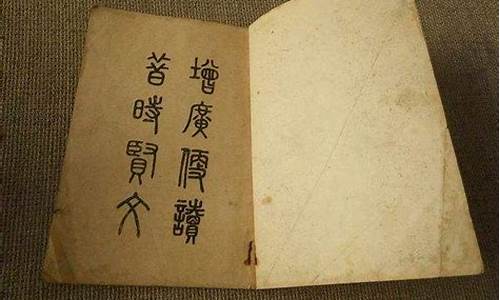 增廣便讀
昔時賢文